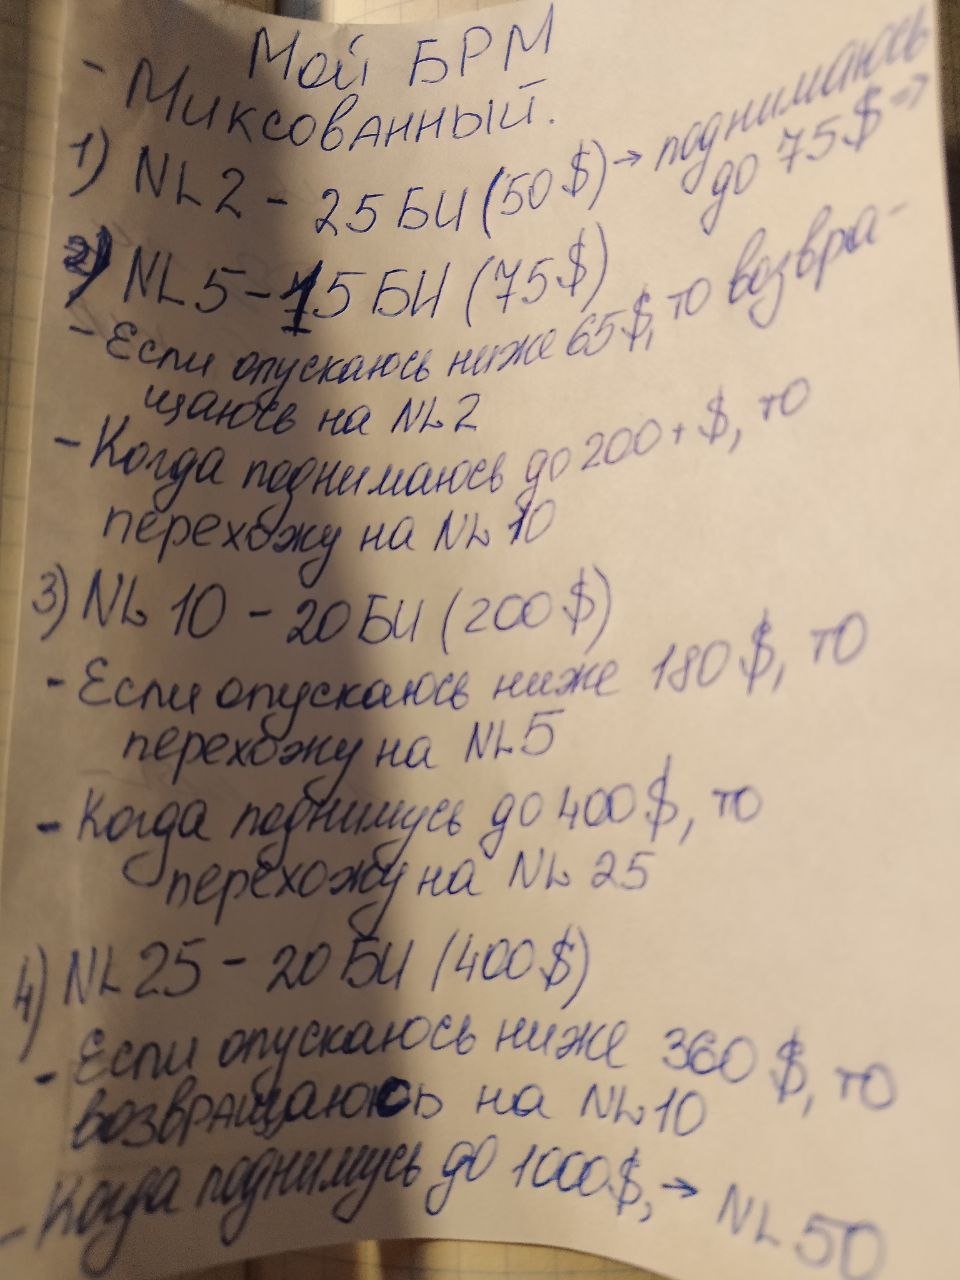 Мой БРМ
- Миксованный.
1) NL2 - 25 БИ (50$) → поднимаюсь
до 75$ =>
2) NL5 - 15 БИ (75$)
- Если опускаюсь ниже 65$, то возвра-
щаюсь на NL2
- Когда поднимаюсь до 200+$, то
перехожу на NL10
3) NL10 - 20 БИ (200$)
- Если опускаюсь ниже 180$, то
перехожу на NL5
- Когда поднимусь до 400$, то
перехожу на NL 25
4) NL25 - 20 БИ (400$)
- Если опускаюсь ниже 360$, то
возвращаюсь на NL10
- Когда поднимусь до 1000$, → NL50